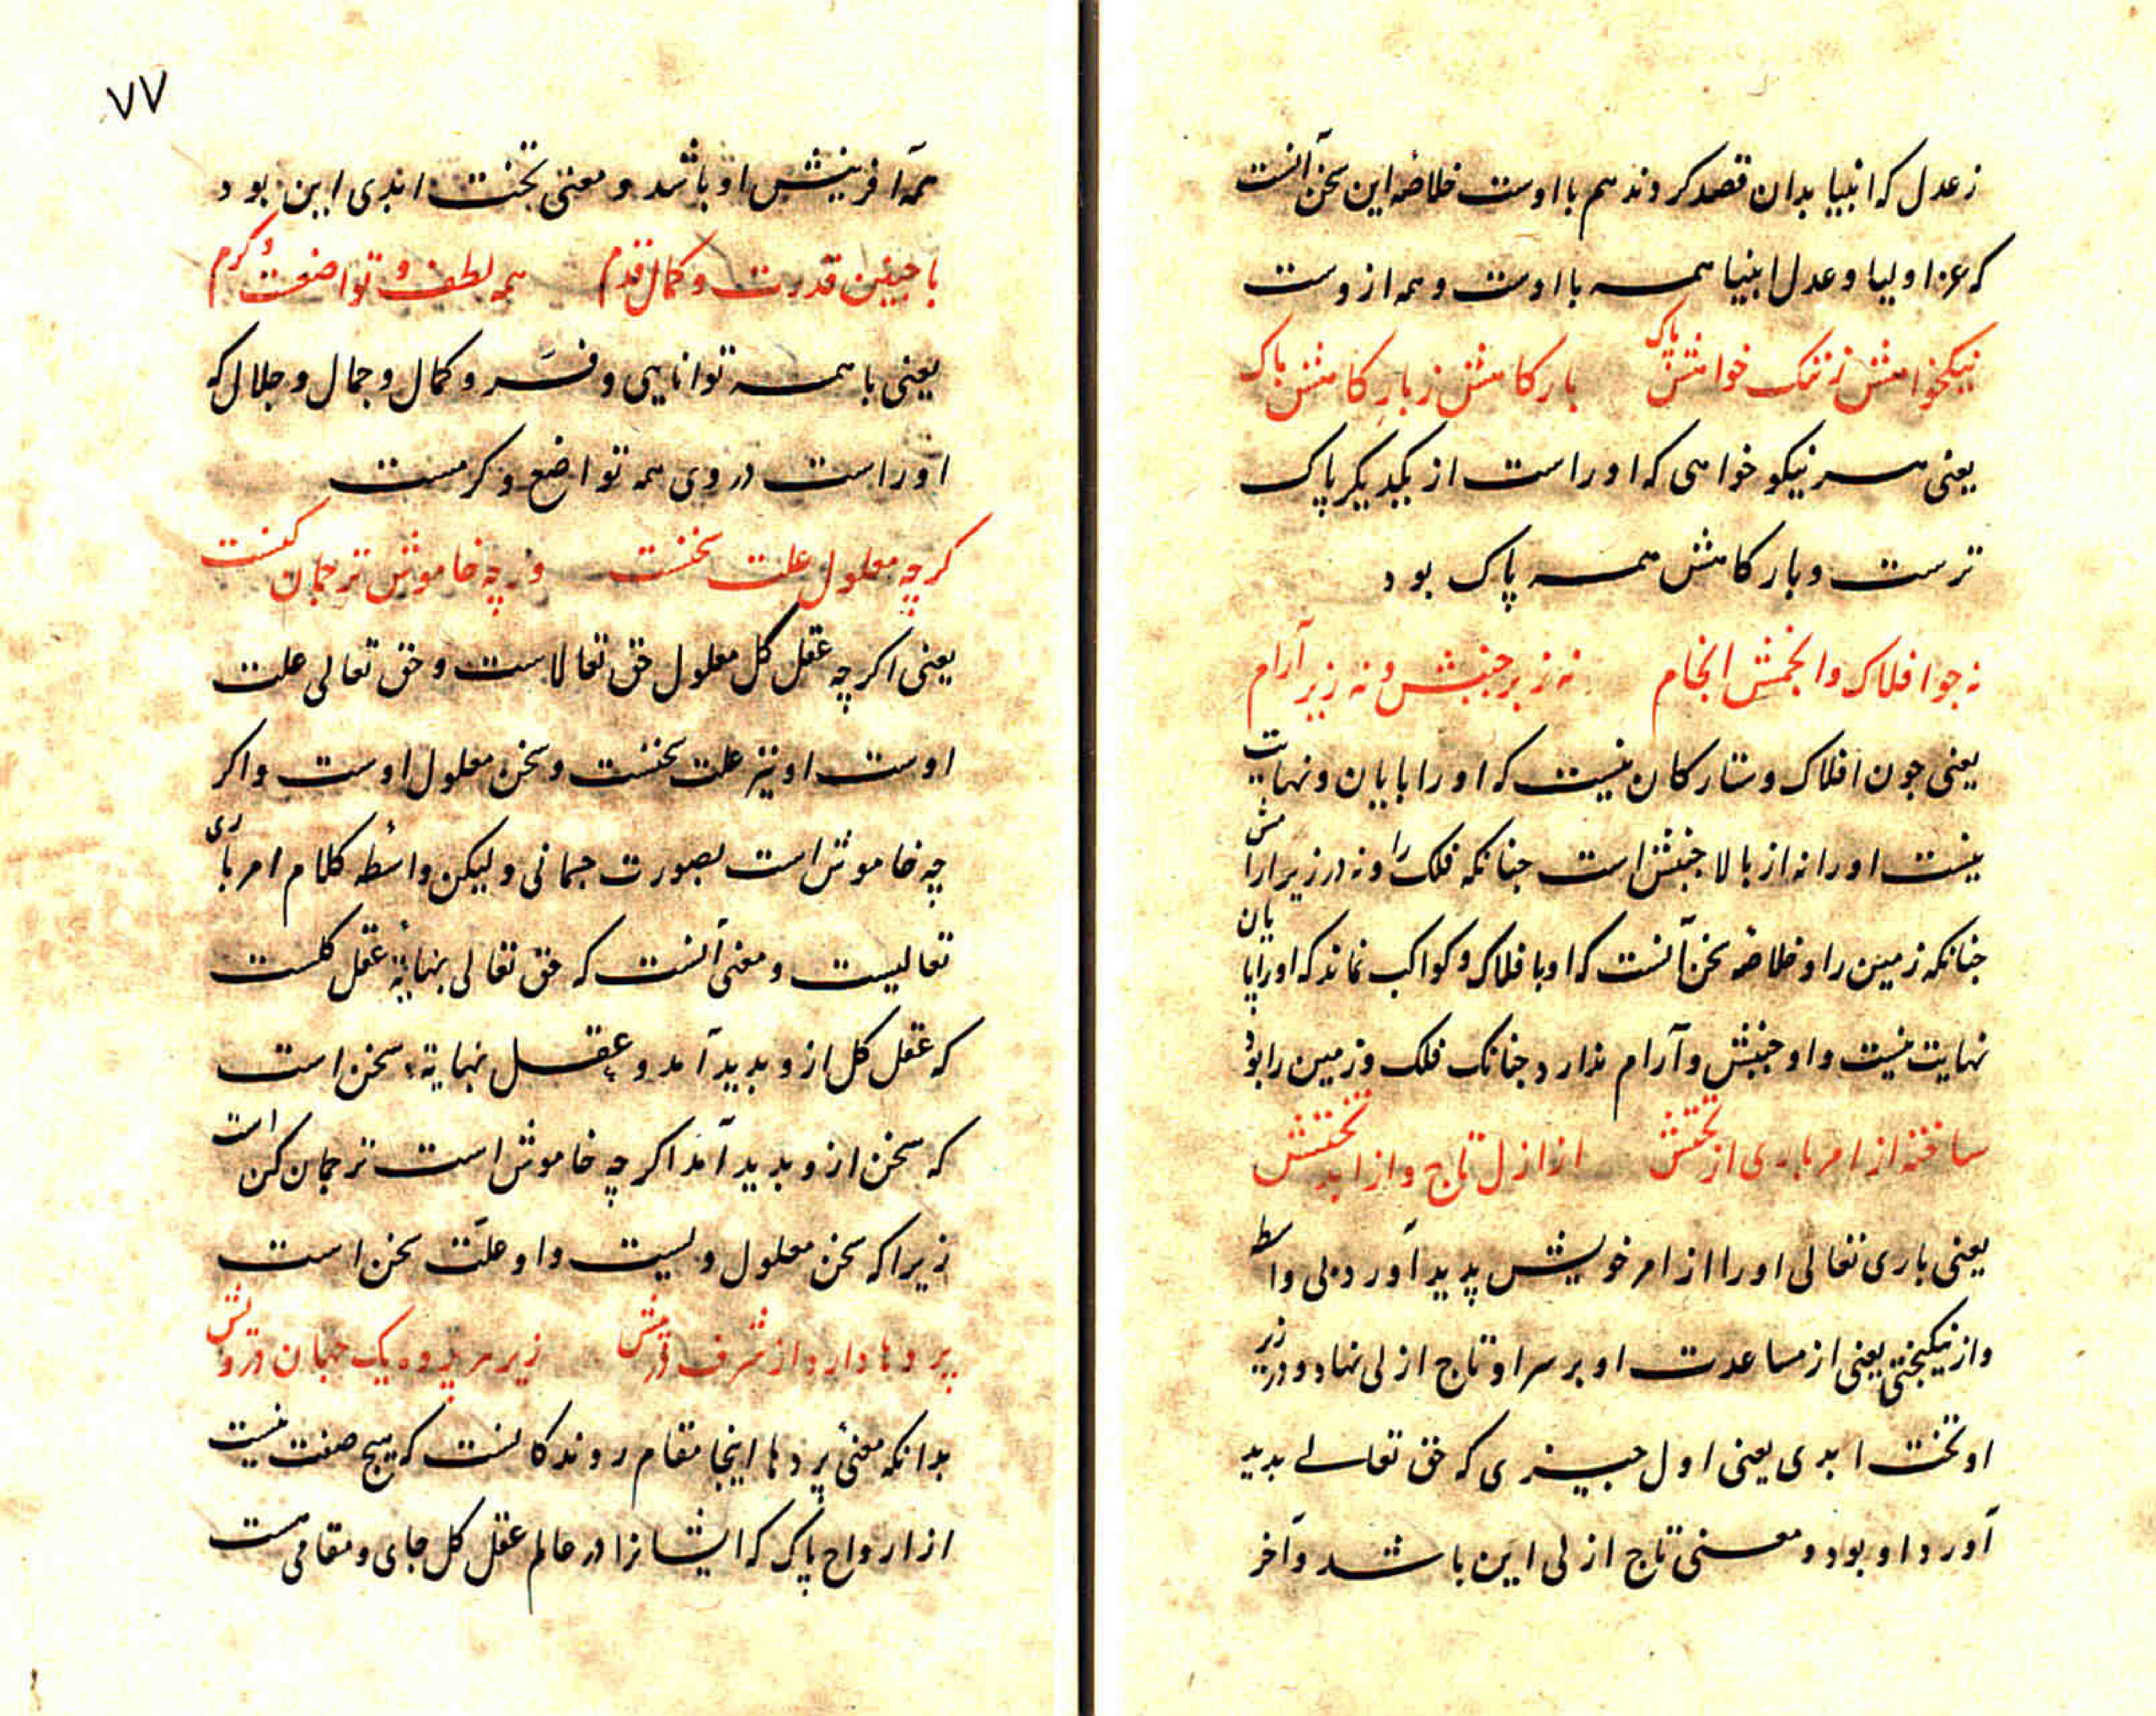 ز عدل که انبیا بدان قصد کردند هم با اوست خلاصه این سخن آنست
که عز اولیا و عدل انبیا همه با اوست و همه از وست
نیکخوامش ز ننک خوامش پاک بارکامش ز بارکامش پاک
یعنی هر نیکو خواهی که او راست از یکدیکر پاک
ترست و بارکامش همه پاک بود
نه جو افلاک و انجمش انجام نه ز بر جنبش و نه زیر آرام
یعنی جون افلاک و ستارکان نیست که او را پایان و نهایت
نیست او را نه از بالا جنبش است جنانکه فلک را و نه در زیر آرامش
جنانکه زمین را و خلاصه سخن آنست که او با فلاک و کواکب نماند که او را پایان
نهایت نیست و او جنبش و آرام ندارد جنانک فلک و زمین را بود
ساخته از امر باری از بختش از ازل تاج و از ابد تختش
یعنی باری تعالی او را از امر خویش پدید آورد بی واسطه
و از نیکبختی یعنی از مساعدت او بر سر او تاج ازلی نهاد و در زیر
او تخت ابدی یعنی اول جیزی که حق تعالی بدید
آورد او بود و معنی تاج ازلی این باشد و آخر
۷۷
همه آفرینش او باشد و معنی تخت ابدی این بود
با جنین قدرت و کمال قدم همه لطف و تواضعت و کرم
یعنی با همه توانایی و فر و کمال و جمال و جلال که
او راست در وی همه تواضع و کرمست
کرچه معلول علت سخنست ورچه خاموش ترجمان کنست
یعنی اکرچه عقل کل معلول حق تعالاست و حق تعالی علت
اوست او نیز علت سخنست و سخن معلول اوست و اکر
چه خاموش است بصورت جسمانی ولیکن واسطه کلام امر باری
تعالیست و معنی آنست که حق تعالی بنهایة عقل کلست
که عقل کل ازو بدید آمد و عقل نهایة سخن است
که سخن ازو بدید آمد اکرچه خاموش است ترجمان کن است
زیرا که سخن معلول ویست و او علت سخن است
پردها دارد از شرف درپیش زیر هر پرده یک جهان درویش
بدانکه معنی پردها اینجا مقام روندکانست که هیج صفت نیست
از ارواح پاک که ایشانرا در عالم عقل کل جای و مقامی هست